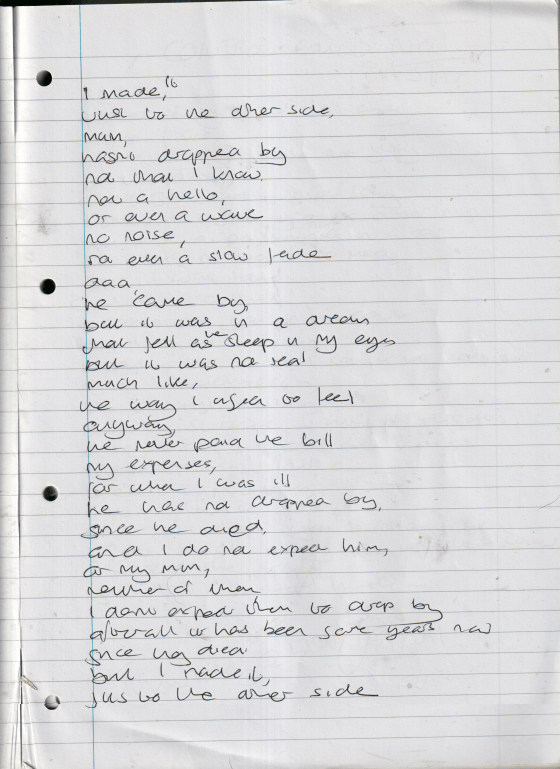 I made, it
just to the other side,
mum,
hasnt dropped by
not that I know.
not a hello,
or even a wave
no noise,
not even a slow fade
dad,
he came by,
but it was in a dream
that fell as the sleep in my eyes
but it was not real
much like,
the way I used to feel
anyway,
he never paid the bill
my expenses,
for when I was ill
he has not dropped by,
since he died,
and I do not expect him,
or my mum,
neither of them,
I dont expect them to drop by
afterall it has been some years now
since they died
but I made it,
jus to the other side